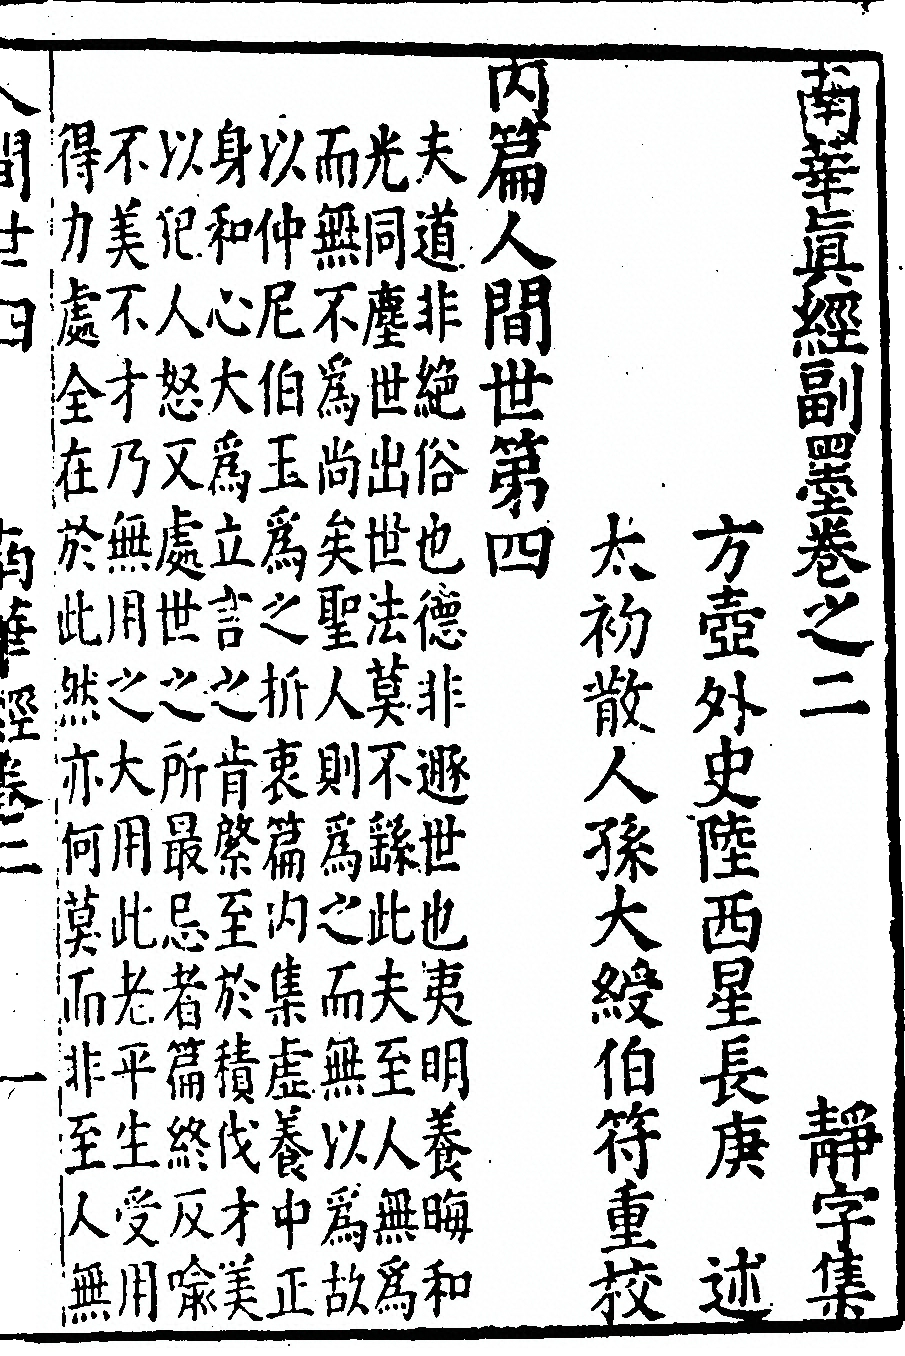 南華真經副墨卷之二　靜字集
方壺外史陸西星長庚　述
太初散人孫大綬伯符重校
內篇人間世第四
夫道非絕俗也德非遯世也夷明養晦和
光同塵世出世法莫不繇此夫至人無為
而無不為尚矣聖人則為之而無以為故
以仲尼伯玉為之折衷篇內集虛養中正
身和心大為立言之肯綮至於積伐才美
以犯人怒又處世之所最忌者篇終反喻
不美不才乃無用之大用此老平生受用
得力處全在於此然亦何莫而非至人無
人間世四　南華經卷二　一